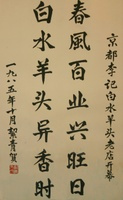 京都李记白水羊头老店开幕
春風百业兴旺日
白水羊头异香时
一九八五年十月絜青贺